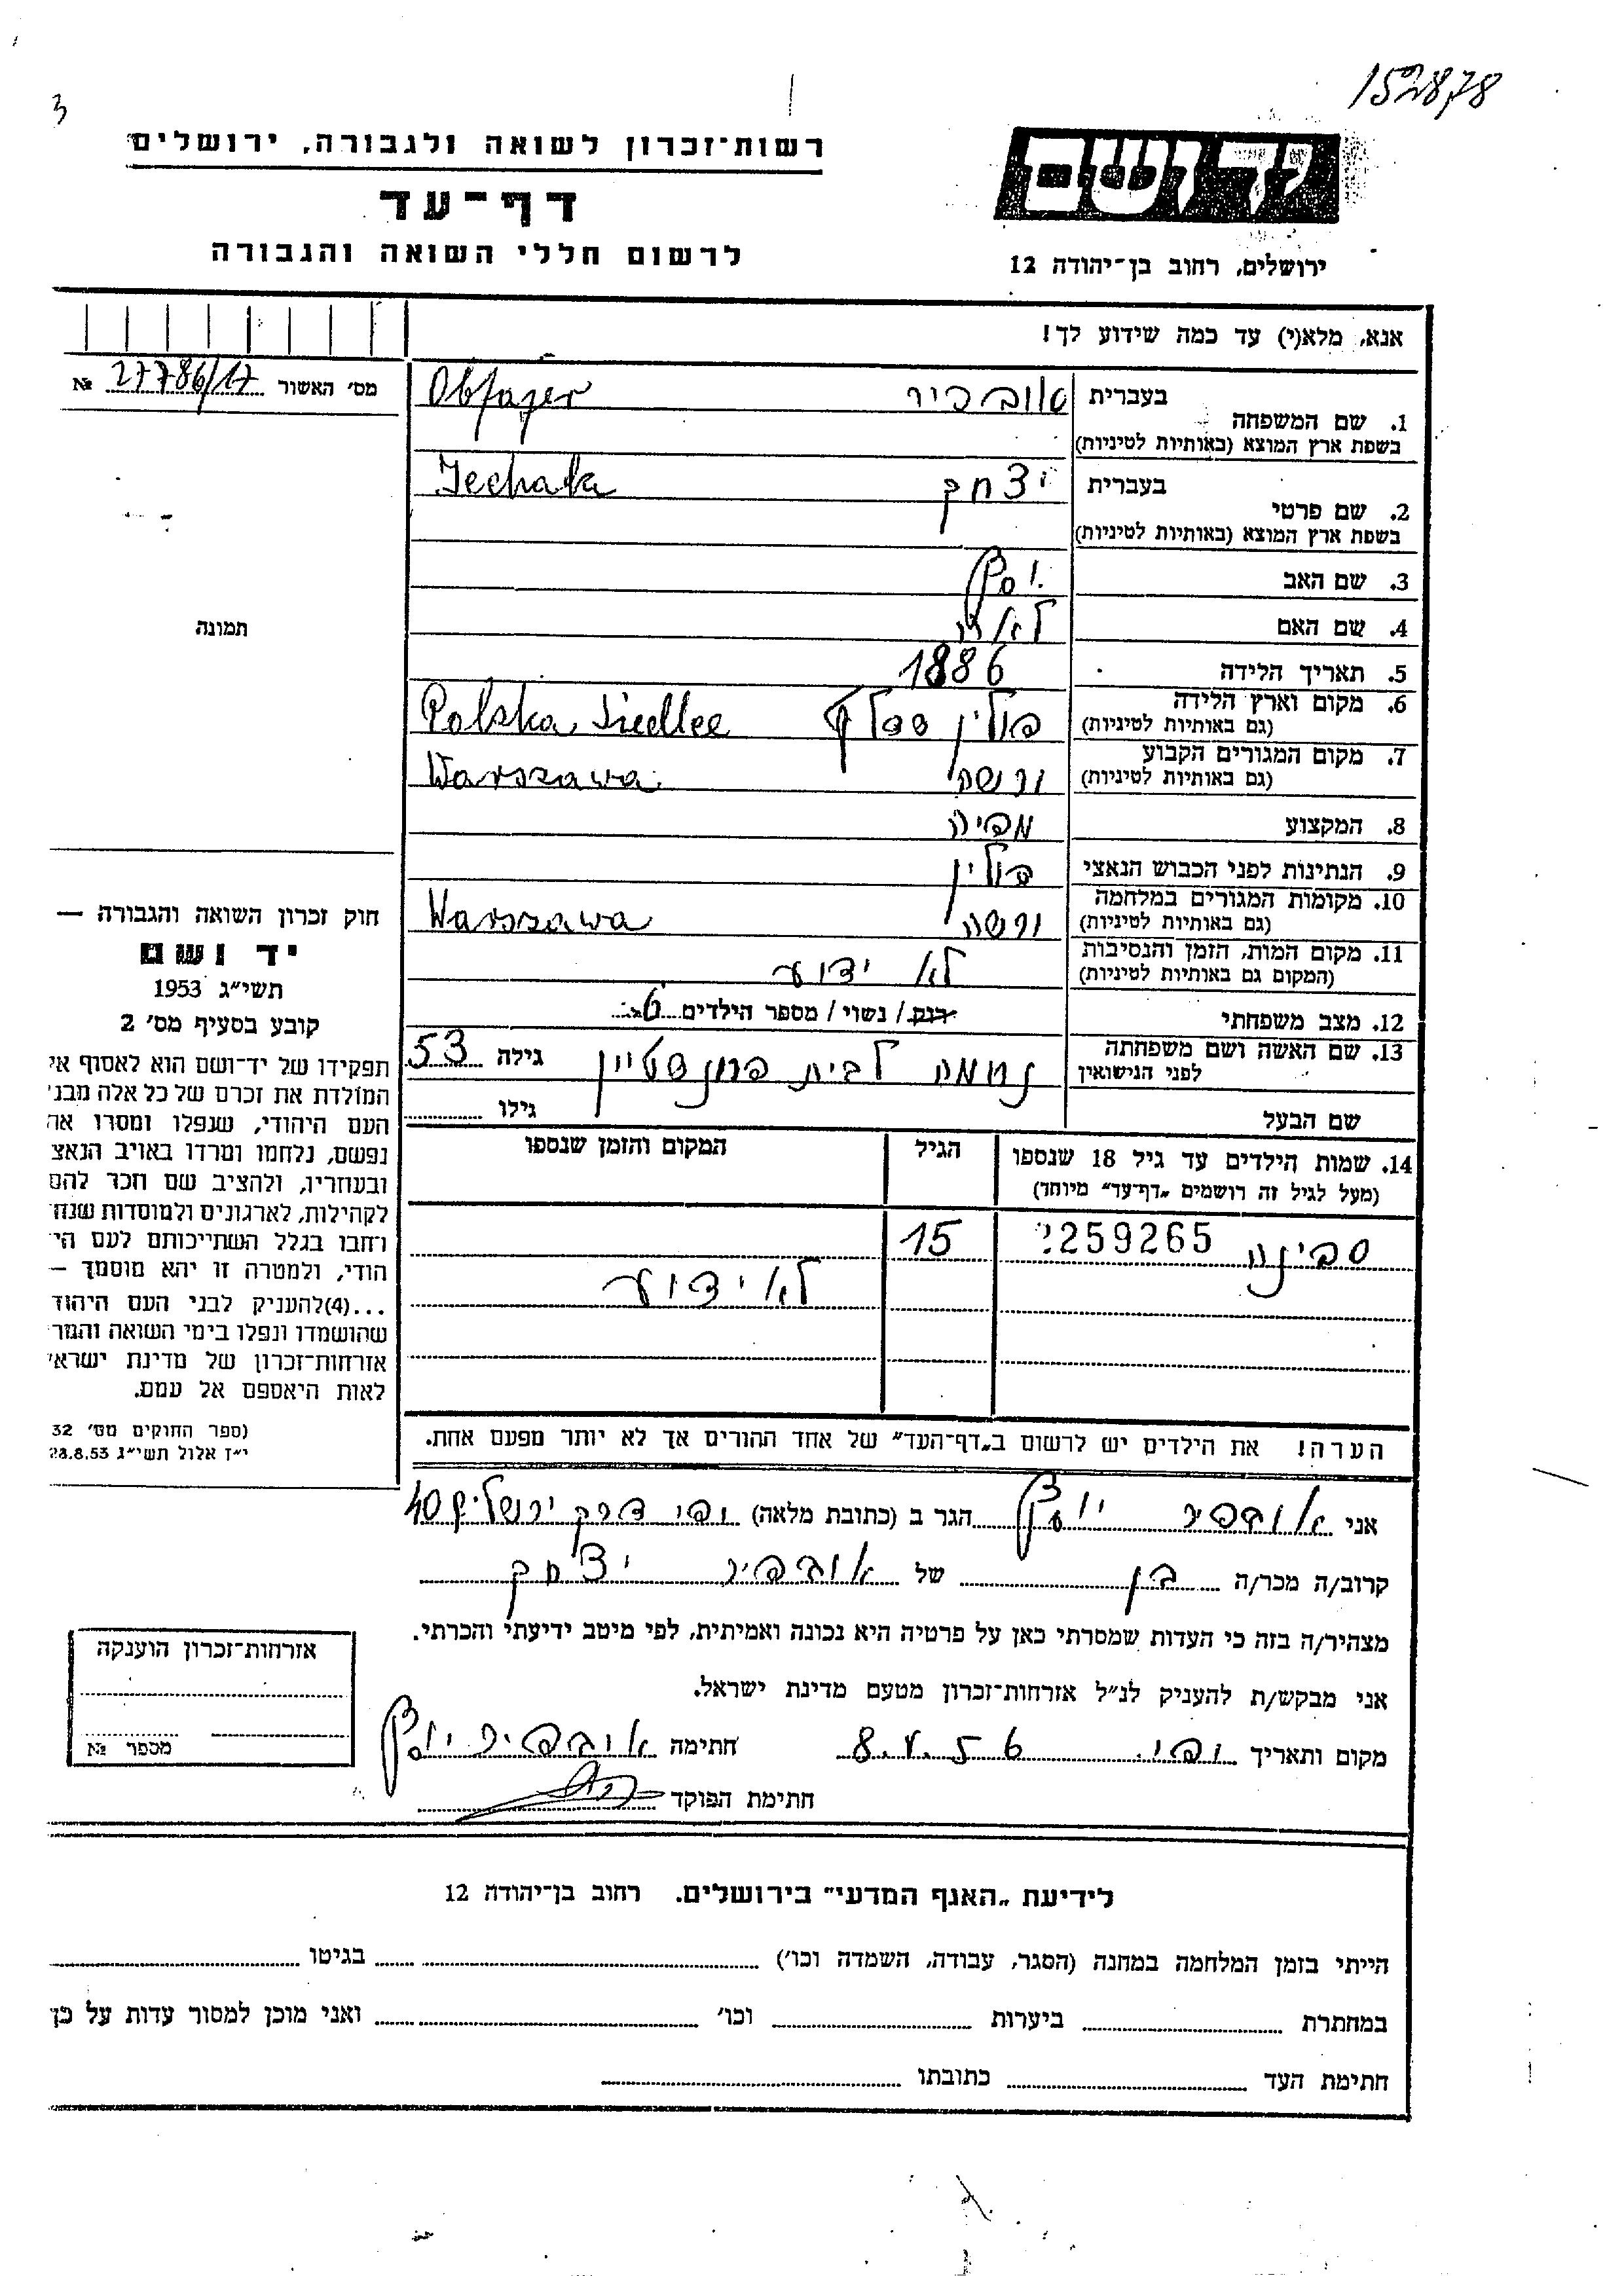 152878
3
יד ושם
רשות־זכרון לשואה ולגבורה, ירושלים
דף־עד
לרשום חללי השואה והגבורה
ירושלים, רחוב בן־יהודה 12
אנא, מלא(י) עד כמה שידוע לך!
מס׳ האשור 27786/17 №
1. שם המשפחה בעברית אובפיר
בשפת ארץ המוצא (באותיות לטיניות) Obfajer
2. שם פרטי בעברית יצחק
בשפת ארץ המוצא (באותיות לטיניות) Icchak
3. שם האב יוסף
4. שם האם לאה
5. תאריך הלידה 1886
6. מקום וארץ הלידה (גם באותיות לטיניות) פולין שדלץ Polska, Siedlce
7. מקום המגורים הקבוע (גם באותיות לטיניות) ורשה Warszawa
8. המקצוע
9. הנתינות לפני הכבוש הנאצי פולין
10. מקומות המגורים במלחמה (גם באותיות לטיניות) ורשה Warszawa
11. מקום המות, הזמן והנסיבות (המקום גם באותיות לטיניות) לא ידוע
12. מצב משפחתי רוק / נשוי / מספר הילדים 6
13. שם האשה ושם משפחתה לפני הנישואין נחמה לבית גילה 53
שם הבעל גילו
14. שמות הילדים עד גיל 18 שנספו הגיל המקום והזמן שנספו
(מעל לגיל זה רושמים „דף־עד״ מיוחד)
סבינה 259265 15
לא ידוע
הערה! את הילדים יש לרשום ב„דף־העד״ של אחד ההורים אך לא יותר מפעם אחת.
תמונה
חוק זכרון השואה והגבורה —
יד ושם
תשי״ג 1953
קובע בסעיף מס׳ 2
תפקידו של יד־ושם הוא לאסוף אי
המולדת את זכרם של כל אלה מבני
העם היהודי, שנפלו ומסרו את
נפשם, נלחמו ומרדו באויב הנאצ
ובעוזריו, ולהציב שם וזכר להם
לקהילות, לארגונים ולמוסדות שנח
רחבו בגלל השתייכותם לעם הי
הודי, ולמטרה זו יהא מוסמך —
...(4)להעניק לבני העם היהוד
שהושמדו ונפלו בימי השואה והמר
אזרחות־זכרון של מדינת ישראי
לאות היאספם אל עמם.
(ספר החוקים מס׳ 32
י״ז אלול תשי״ג 28.8.53
אני אובפיר יוסף הגר ב (כתובת מלאה) יפו דרך ירושלים 40
קרוב/ה מכר/ה בן של אובפיר יצחק
מצהיר/ה בזה כי העדות שמסרתי כאן על פרטיה היא נכונה ואמיתית, לפי מיטב ידיעתי והכרתי.
אני מבקש/ת להעניק לנ״ל אזרחות־זכרון מטעם מדינת ישראל.
מקום ותאריך יפו 8.7.56 חתימה אובפיר יוסף
חתימת הפוקד
אזרחות־זכרון הוענקה
מספר №
לידיעת „האגף המדעי״ בירושלים. רחוב בן־יהודה 12
הייתי בזמן המלחמה במחנה (הסגר, עבודה, השמדה וכו׳) בגיטו
במחתרת ביערות וכו׳ ואני מוכן למסור עדות על כך
חתימת העד כתובתו